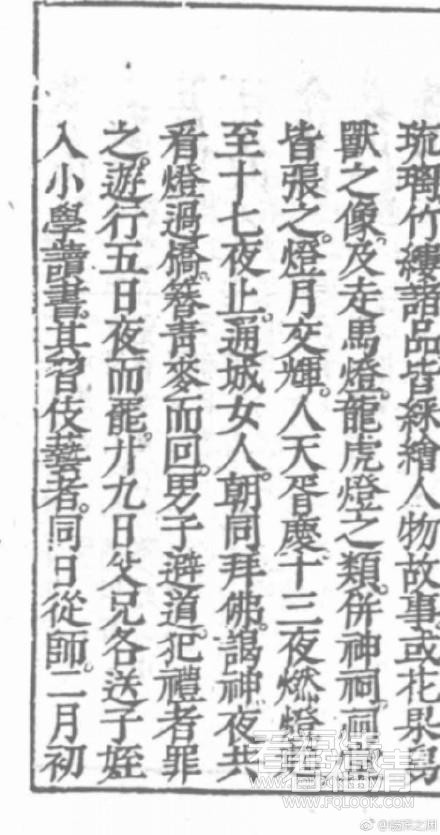 琉璃竹縷諸品皆綵繪人物故事。或花果鳥
獸之像。及走馬燈。龍虎燈之類。併神祠祠
皆張之。燈月交輝。人天胥慶。十三夜燃燈起
至十七夜止。通城女人。朝同拜佛。謁神。夜共
看燈過橋。簪青麥而回。男子避道。犯禮者罪
之。遊行五日夜而罷。廿九日父兄各送子姪
入小學讀書。其習伎藝者。同日從師。二月初
看福清
WWW.FQLOOK.COM